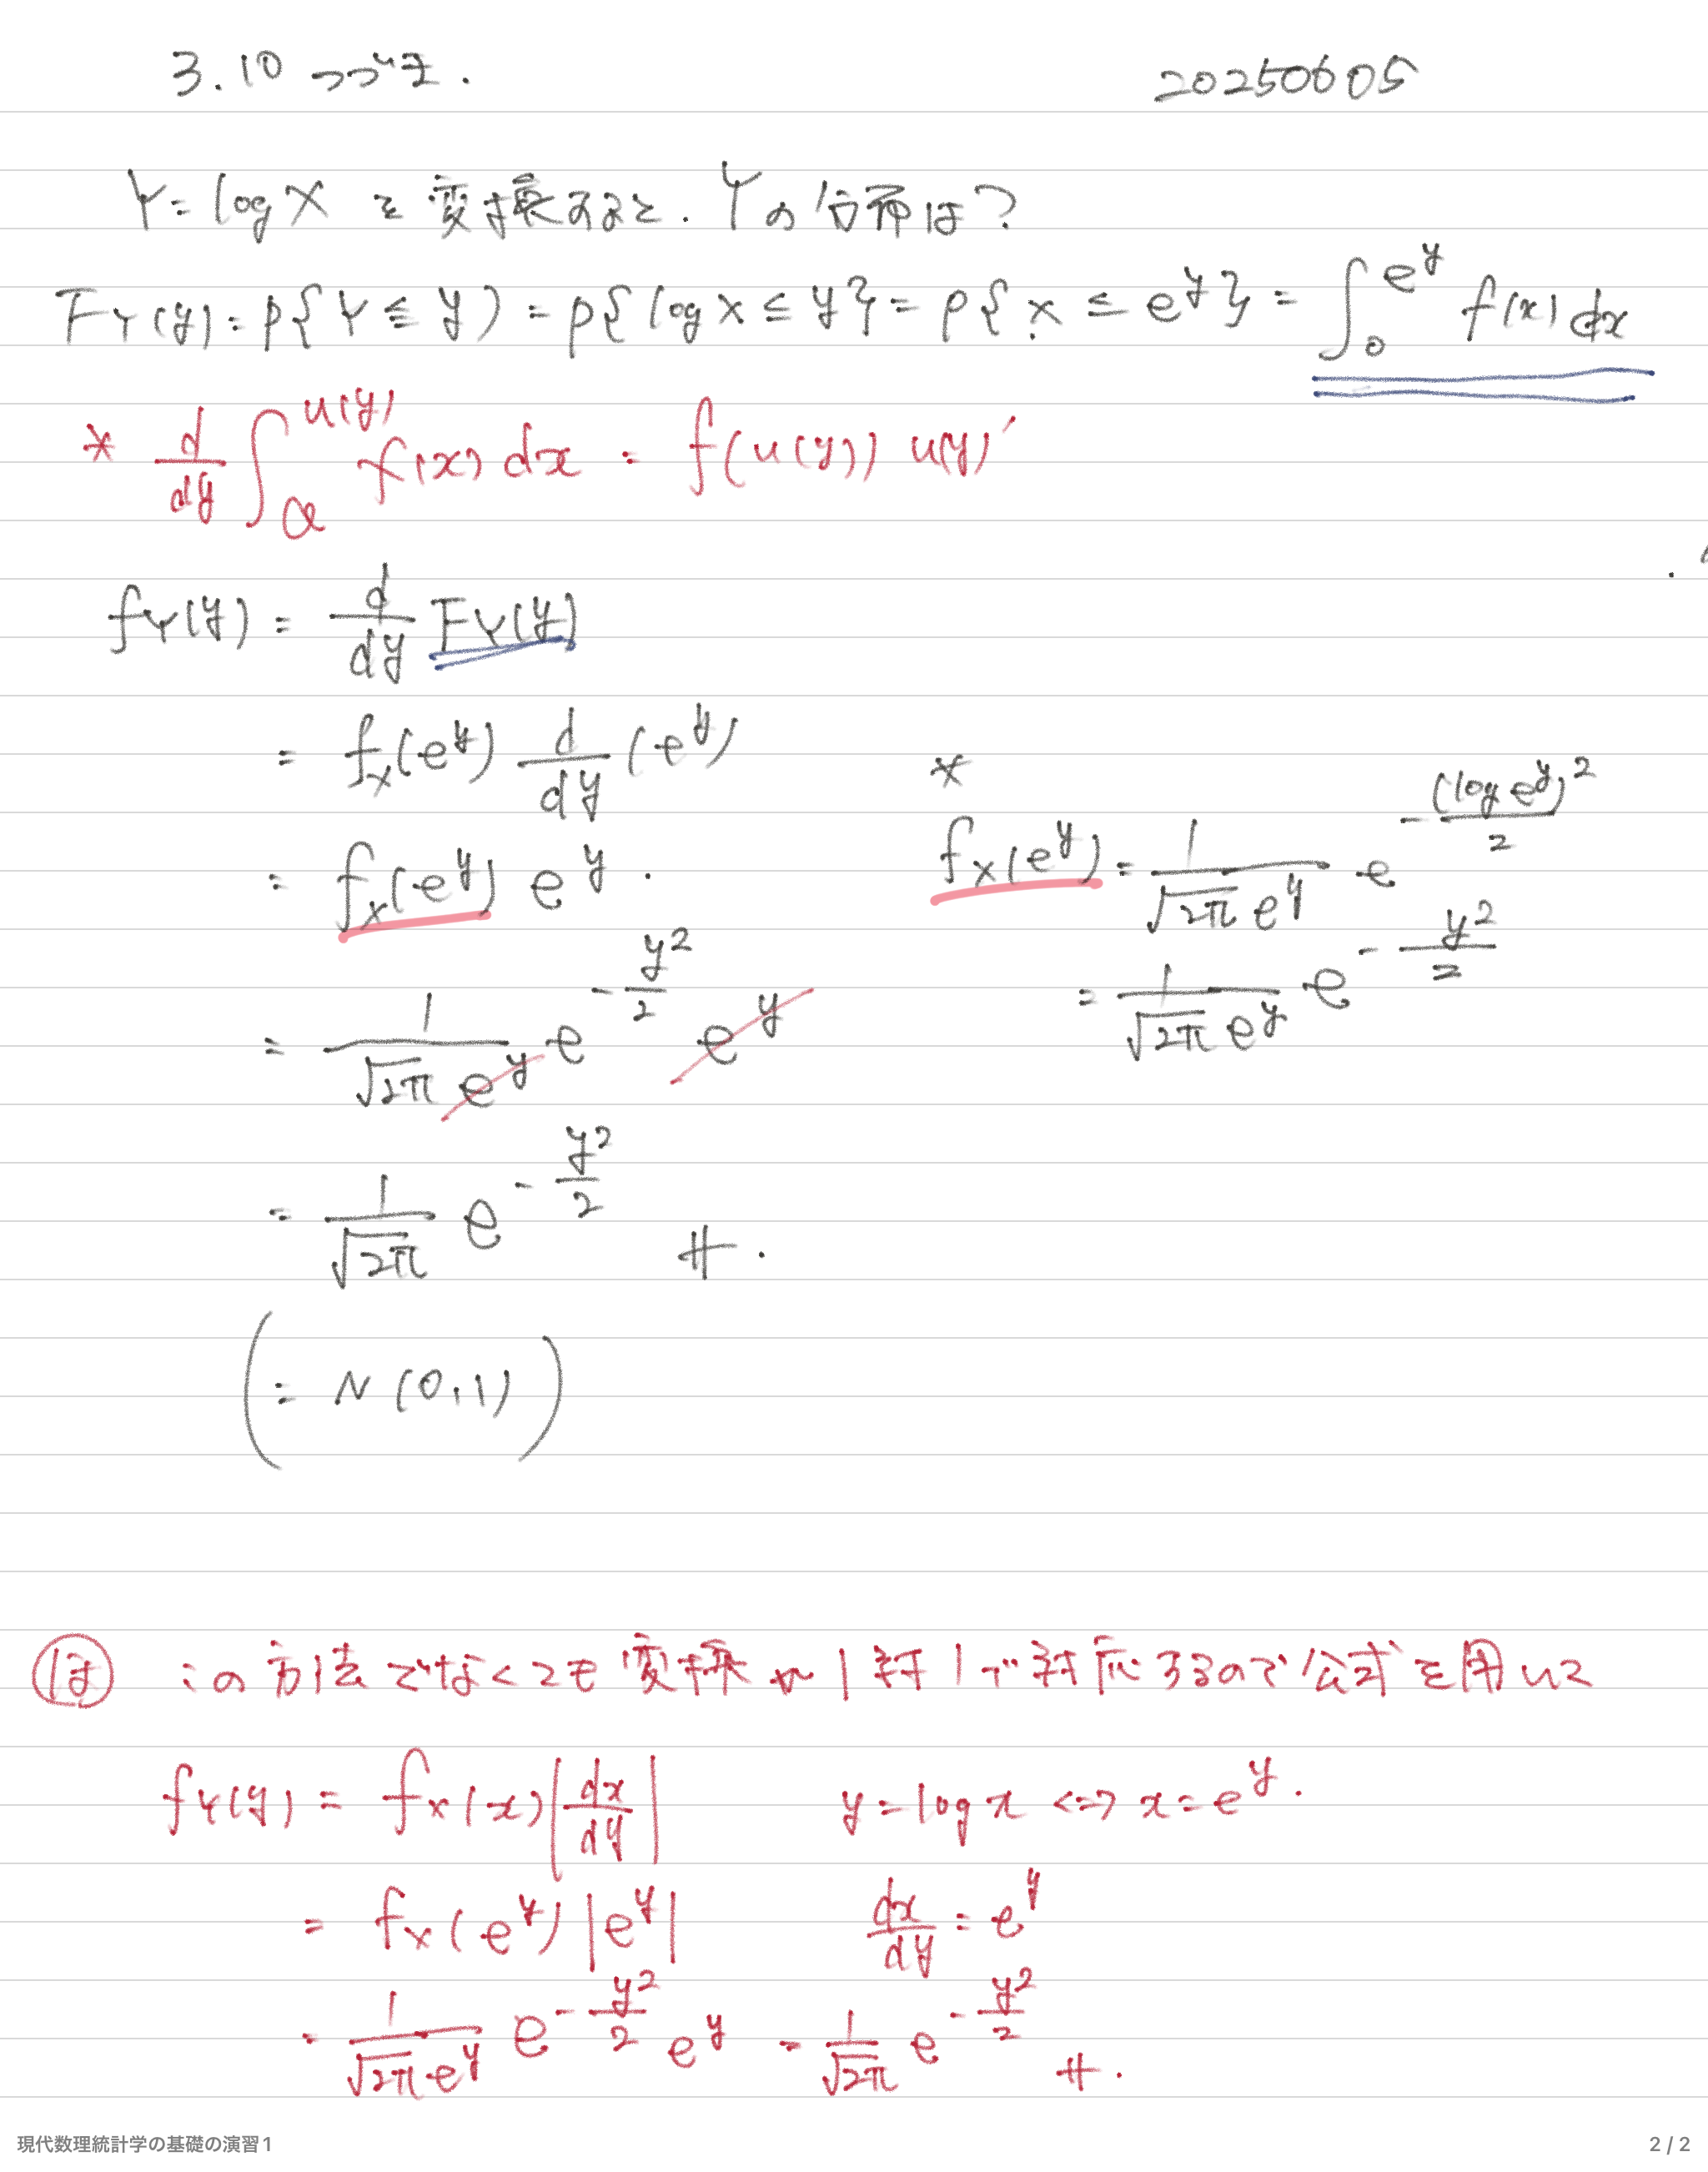 3.10 つづき. 20250605
Y = log X と変換すると. Yの分布は?
F_Y(y) = P{Y ≦ y) = P{log X ≤ y} = P{X ≤ e^y} = ∫_0^{e^y} f(x) dx
* d/dy ∫_a^{u(y)} f(x) dx = f(u(y)) u(y)'
f_Y(y) = d/dy F_Y(y)
= f_X(e^y) d/dy (e^y)
= f_X(e^y) e^y .
= 1/(√2π e^y) e^{-y²/2} e^y
= 1/√2π e^{-y²/2} #.
(= N(0,1))
*
f_X(e^y) = 1/(√2π e^y) e^{-(log e^y)²/2}
= 1/(√2π e^y) e^{-y²/2}
ほ この方法でなくても変換が1対1で対応するので公式を用いて
f_Y(y) = f_X(x) |dx/dy| y = log x <=> x = e^y .
= f_X(e^y) |e^y| dx/dy = e^y
= 1/(√2π e^y) e^{-y²/2} e^y = 1/√2π e^{-y²/2} #.
現代数理統計学の基礎の演習1 2 / 2